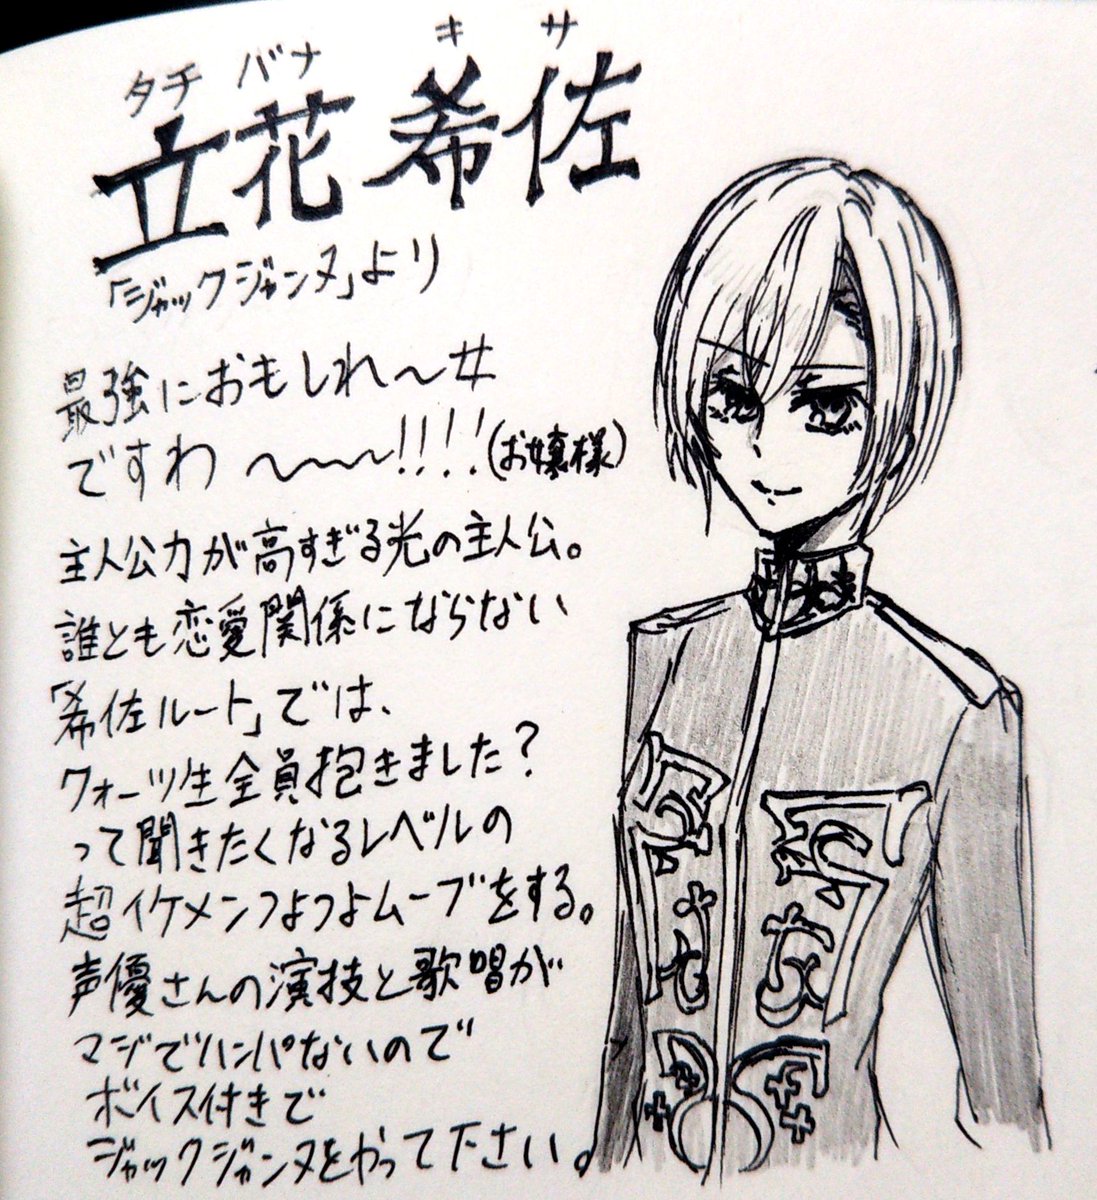 タチバナ キサ
立花 希佐
「ジャックジャンヌ」より
最強におもしれ〜女
ですわ 〜〜〜!!!!(お嬢様)
主人公力が高すぎる光の主人公。
誰とも恋愛関係にならない
「希佐ルート」では、
クォーツ生全員抱きました?
って聞きたくなるレベルの
超イケメンつよつよムーブをする。
声優さんの演技と歌唱が
マジでハンパないので
ボイス付きで
ジャックジャンヌをやって下さい。